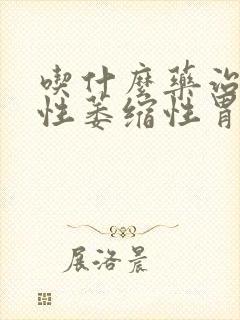 喫什麼藥治
性萎縮性胃
展洛晨